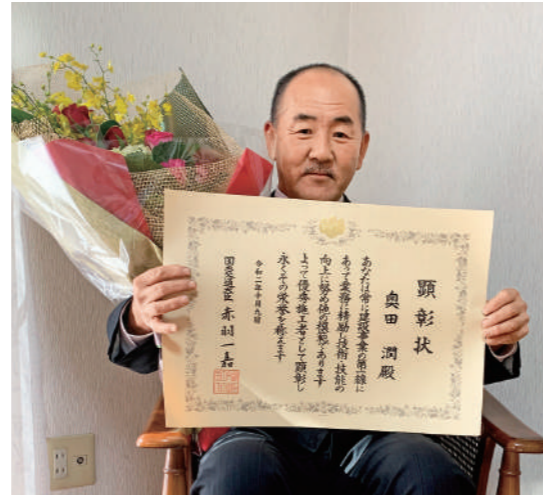 顕彰状
奥田 潤殿
あなたは常に建設事業の第一線に
あって業務に精励し技術・技能の
向上に努め他の模範であります
よって優秀施工者として顕彰し
永くその栄誉を称えます
令和二年十月九日
国土交通大臣 赤羽一嘉